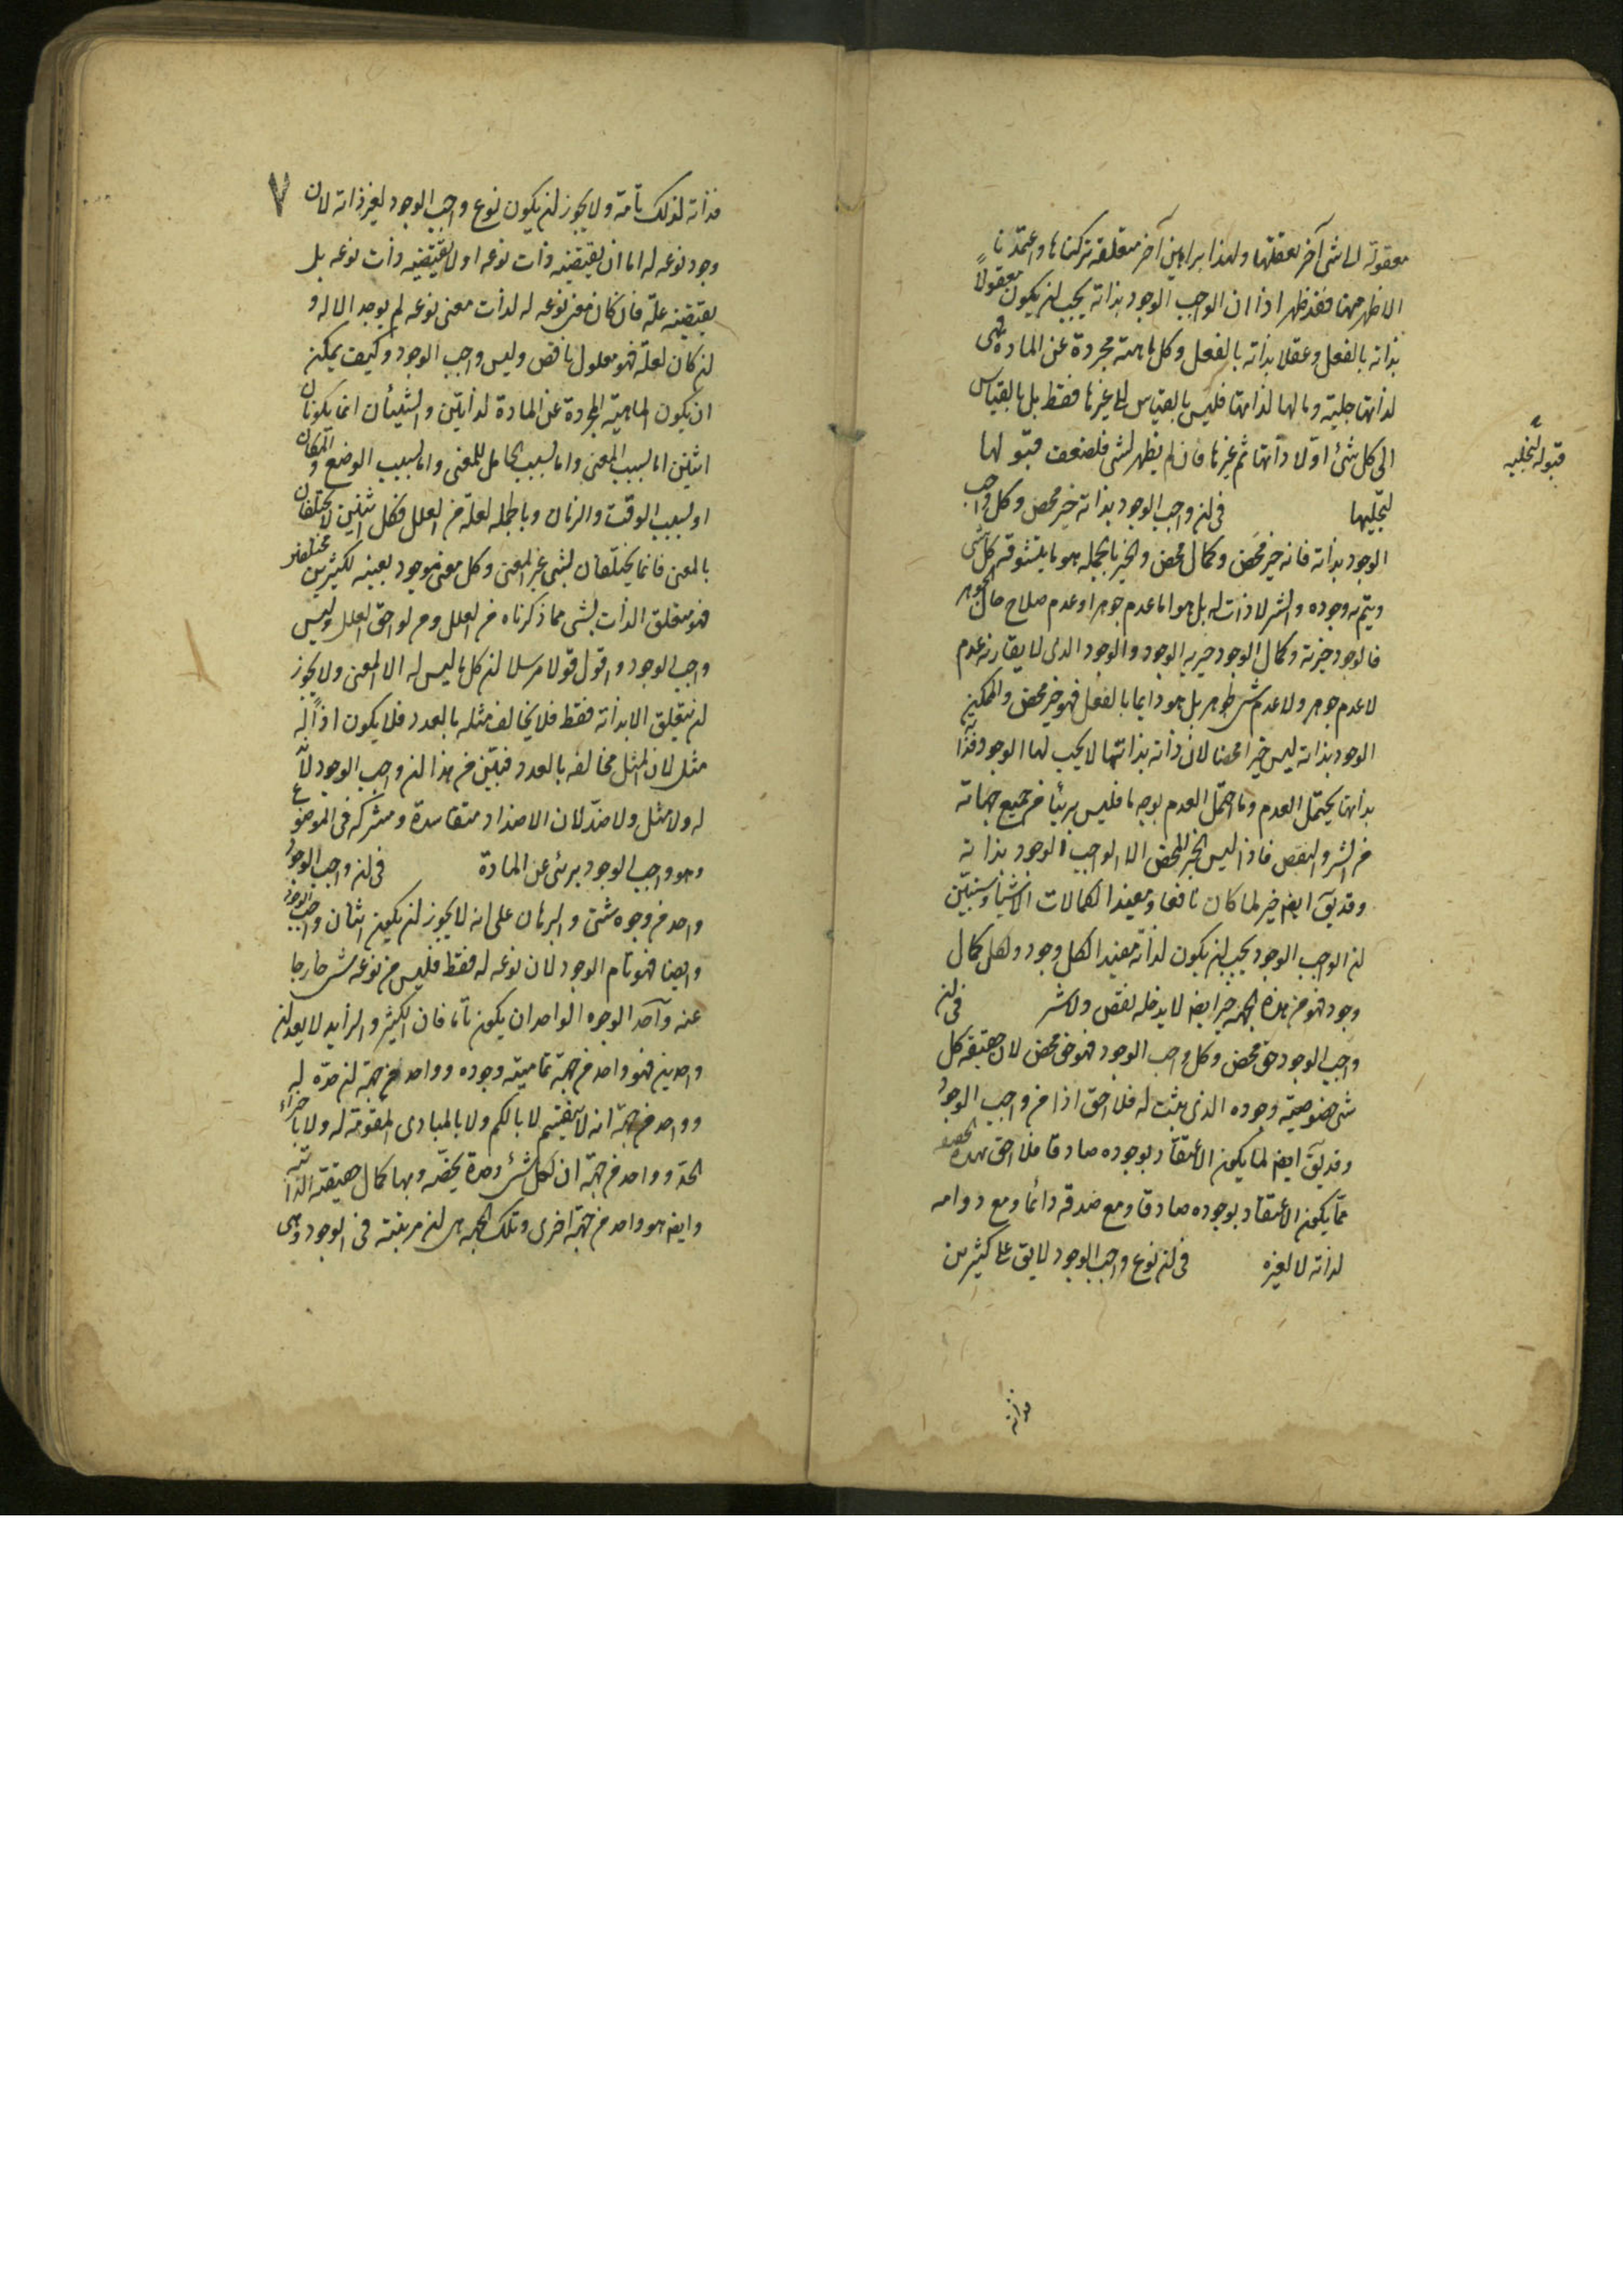 معقولة الى شىء آخر يعقلها ولهذا براهين آخر متعلقة تركناها واعتمدنا
الاظهر منها فقد ظهر اذا ان الواجب الوجود بذاته يجب لن يكون معقولاً
بذاته بالفعل وعقلا بذاته بالفعل وكل ماهية مجردة عن المادة فهى
لذاتها جلية ومالها لذاتها فليس بالقياس الى غيرها فقط بل بالقياس
الى كل شئ اولا ذاتها ثم غيرها فان لم يظهر لشى فلضعف قبولها
لتجليها فى لن واجب الوجود بذاته خير محض وكل واجب
الوجود بذاته فانه خير محض وكمال محض والخير بالجمله هو ما يتشوقه كل شى
ويتم به وجوده والشر لا ذات له بل هو اما عدم جوهر او عدم صلاح حال الجوهر
فالوجود خيرية وكمال الوجود خيرية الوجود والوجود الذى لا يقارنه عدم
لا عدم جوهر ولا عدم شى للجوهر بل هو دايما بالفعل فهو خير محض والممكن
الوجود بذاته ليس خيرا محضا لان ذاته بذاتها لا يجب لها الوجود فذاته
بذاتها يحتمل العدم وما احتمل العدم بوجه ما فليس بريئا من جميع جهاته
من الشر والنقص فاذا ليس الخير المحض الا الواجب الوجود بذاته
وقد يق ايضا خير لما كان نافعا ومفيدا لكمالات الاشياء وسنبيّن
لن الواجب الوجود يجب لن يكون لذاته مفيدا لكل وجود ولكل كمال
وجود فهو من هذه الجهة خير ايضا لا يدخله نقص ولا شر فى لن
واجب الوجود حق محض وكل واجب الوجود فهو حق محض لان حقيقة كل
شى خصوصية وجوده الذى يثبت له فلا احق اذا من واجب الوجود
وقد يق ايضا لما يكون الاعتقاد بوجوده صادقا فلا احق بهذه الحقيقة
مما يكون الاعتقاد بوجوده صادقا ومع صدقه دائما ومع دوامه
لذاته لا لغيره فى لن نوع واجب الوجود لا يق على كثيرين
فذاته
قبوله لتجليه
٧
فذاته لذلك تامة ولا يجوز لن يكون نوع واجب الوجود لغير ذاته لان
وجود نوعه له اما ان يقتضيه ذات نوعه او لا يقتضيه ذات نوعه بل
يقتضيه علة فان كان معنى نوعه له لذات معنى نوعه لم يوجد الا له و
لن كان لعلة فهو معلول ناقص وليس واجب الوجود وكيف يمكن
ان يكون الماهية المجردة عن المادة لذاتين والشيئان انما يكونان
اثنين اما بسبب المعنى واما بسبب الحامل للمعنى واما بسبب الوضع والمكان
او بسبب الوقت والزمان وبالجملة لعلة من العلل فكل اثنين لا يختلفان
بالمعنى فانما يختلفان بشى غير المعنى وكل معنى موجود بعينه لكثيرين مختلفين
فهو متعلق الذات بشى مما ذكرناه من العلل ومن لواحق العلل وليس
واجب الوجود واقول قولا مرسلا لن كل ما ليس له الا المعنى ولا يجوز
لن يتعلق الا بذاته فقط فلا يخالف مثله بالعدد فلا يكون اذاً له
مثل لان المثل مخالفه بالعدد فتبين من هذا لن واجب الوجود لا ندّ
له ولا مثل ولا ضدّ لان الاضداد متفاسدة ومشركة فى الموضوع
وهو واجب الوجود برئى عن المادة فى لن واجب الوجود
واحد من وجوه شتى والبرهان على انه لا يجوز لن يكون اثنان واجب الوجود
وايضا فهو تام الوجود لان نوعه له فقط فليس من نوعه شى خارجا
عنه وآحد الوجوه الواحد ان يكون تاما فان الكثير والزايد لا يعد لن
واحدين فهو واحد من جهة تمامية وجوده وواحد من جهة لن حدّه له
وواحد من جهة انه لا ينقسم لا بالكم ولا بالمبادى المقومة له ولا باجزاء
الحدّ وواحد من جهة ان لكل شئ وحدة يخصّه وبها كمال حقيقته الذاتية
وايضا هو واحد من جهة اخرى وتلك الجهة هى لن مرتبته فى الوجود وهى